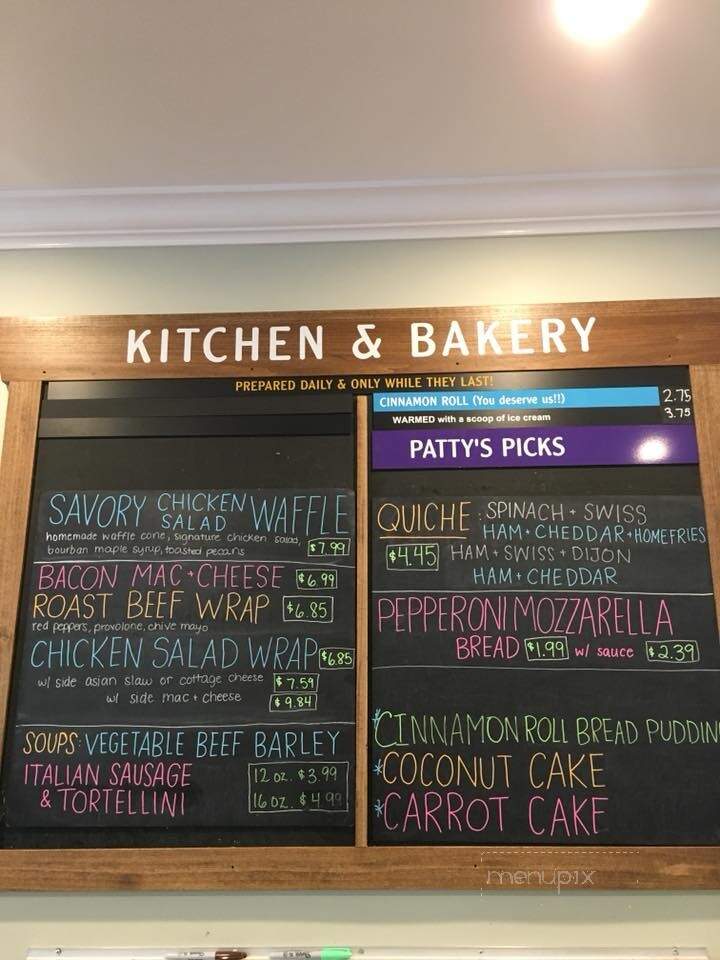 KITCHEN & BAKERY
PREPARED DAILY & ONLY WHILE THEY LAST!
SAVORY CHICKEN SALAD WAFFLE
homemade waffle cone, signature chicken salad,
bourban maple syrup, toasted pecans $7.99
BACON MAC + CHEESE $6.99
ROAST BEEF WRAP $6.85
red peppers, provolone, chive mayo
CHICKEN SALAD WRAP $6.85
w/ side asian slaw or cottage cheese $7.59
w/ side mac + cheese $9.84
SOUPS: VEGETABLE BEEF BARLEY
ITALIAN SAUSAGE 12 oz. $3.99
& TORTELLINI 16 oz. $4.99
CINNAMON ROLL (You deserve us!!) 2.75
WARMED with a scoop of ice cream 3.75
PATTY'S PICKS
QUICHE: SPINACH + SWISS
HAM + CHEDDAR + HOMEFRIES
$4.45 HAM + SWISS + DIJON
HAM + CHEDDAR
PEPPERONI MOZZARELLA
BREAD $1.99 w/ sauce $2.39
*CINNAMON ROLL BREAD PUDDIN
*COCONUT CAKE
*CARROT CAKE
menupix